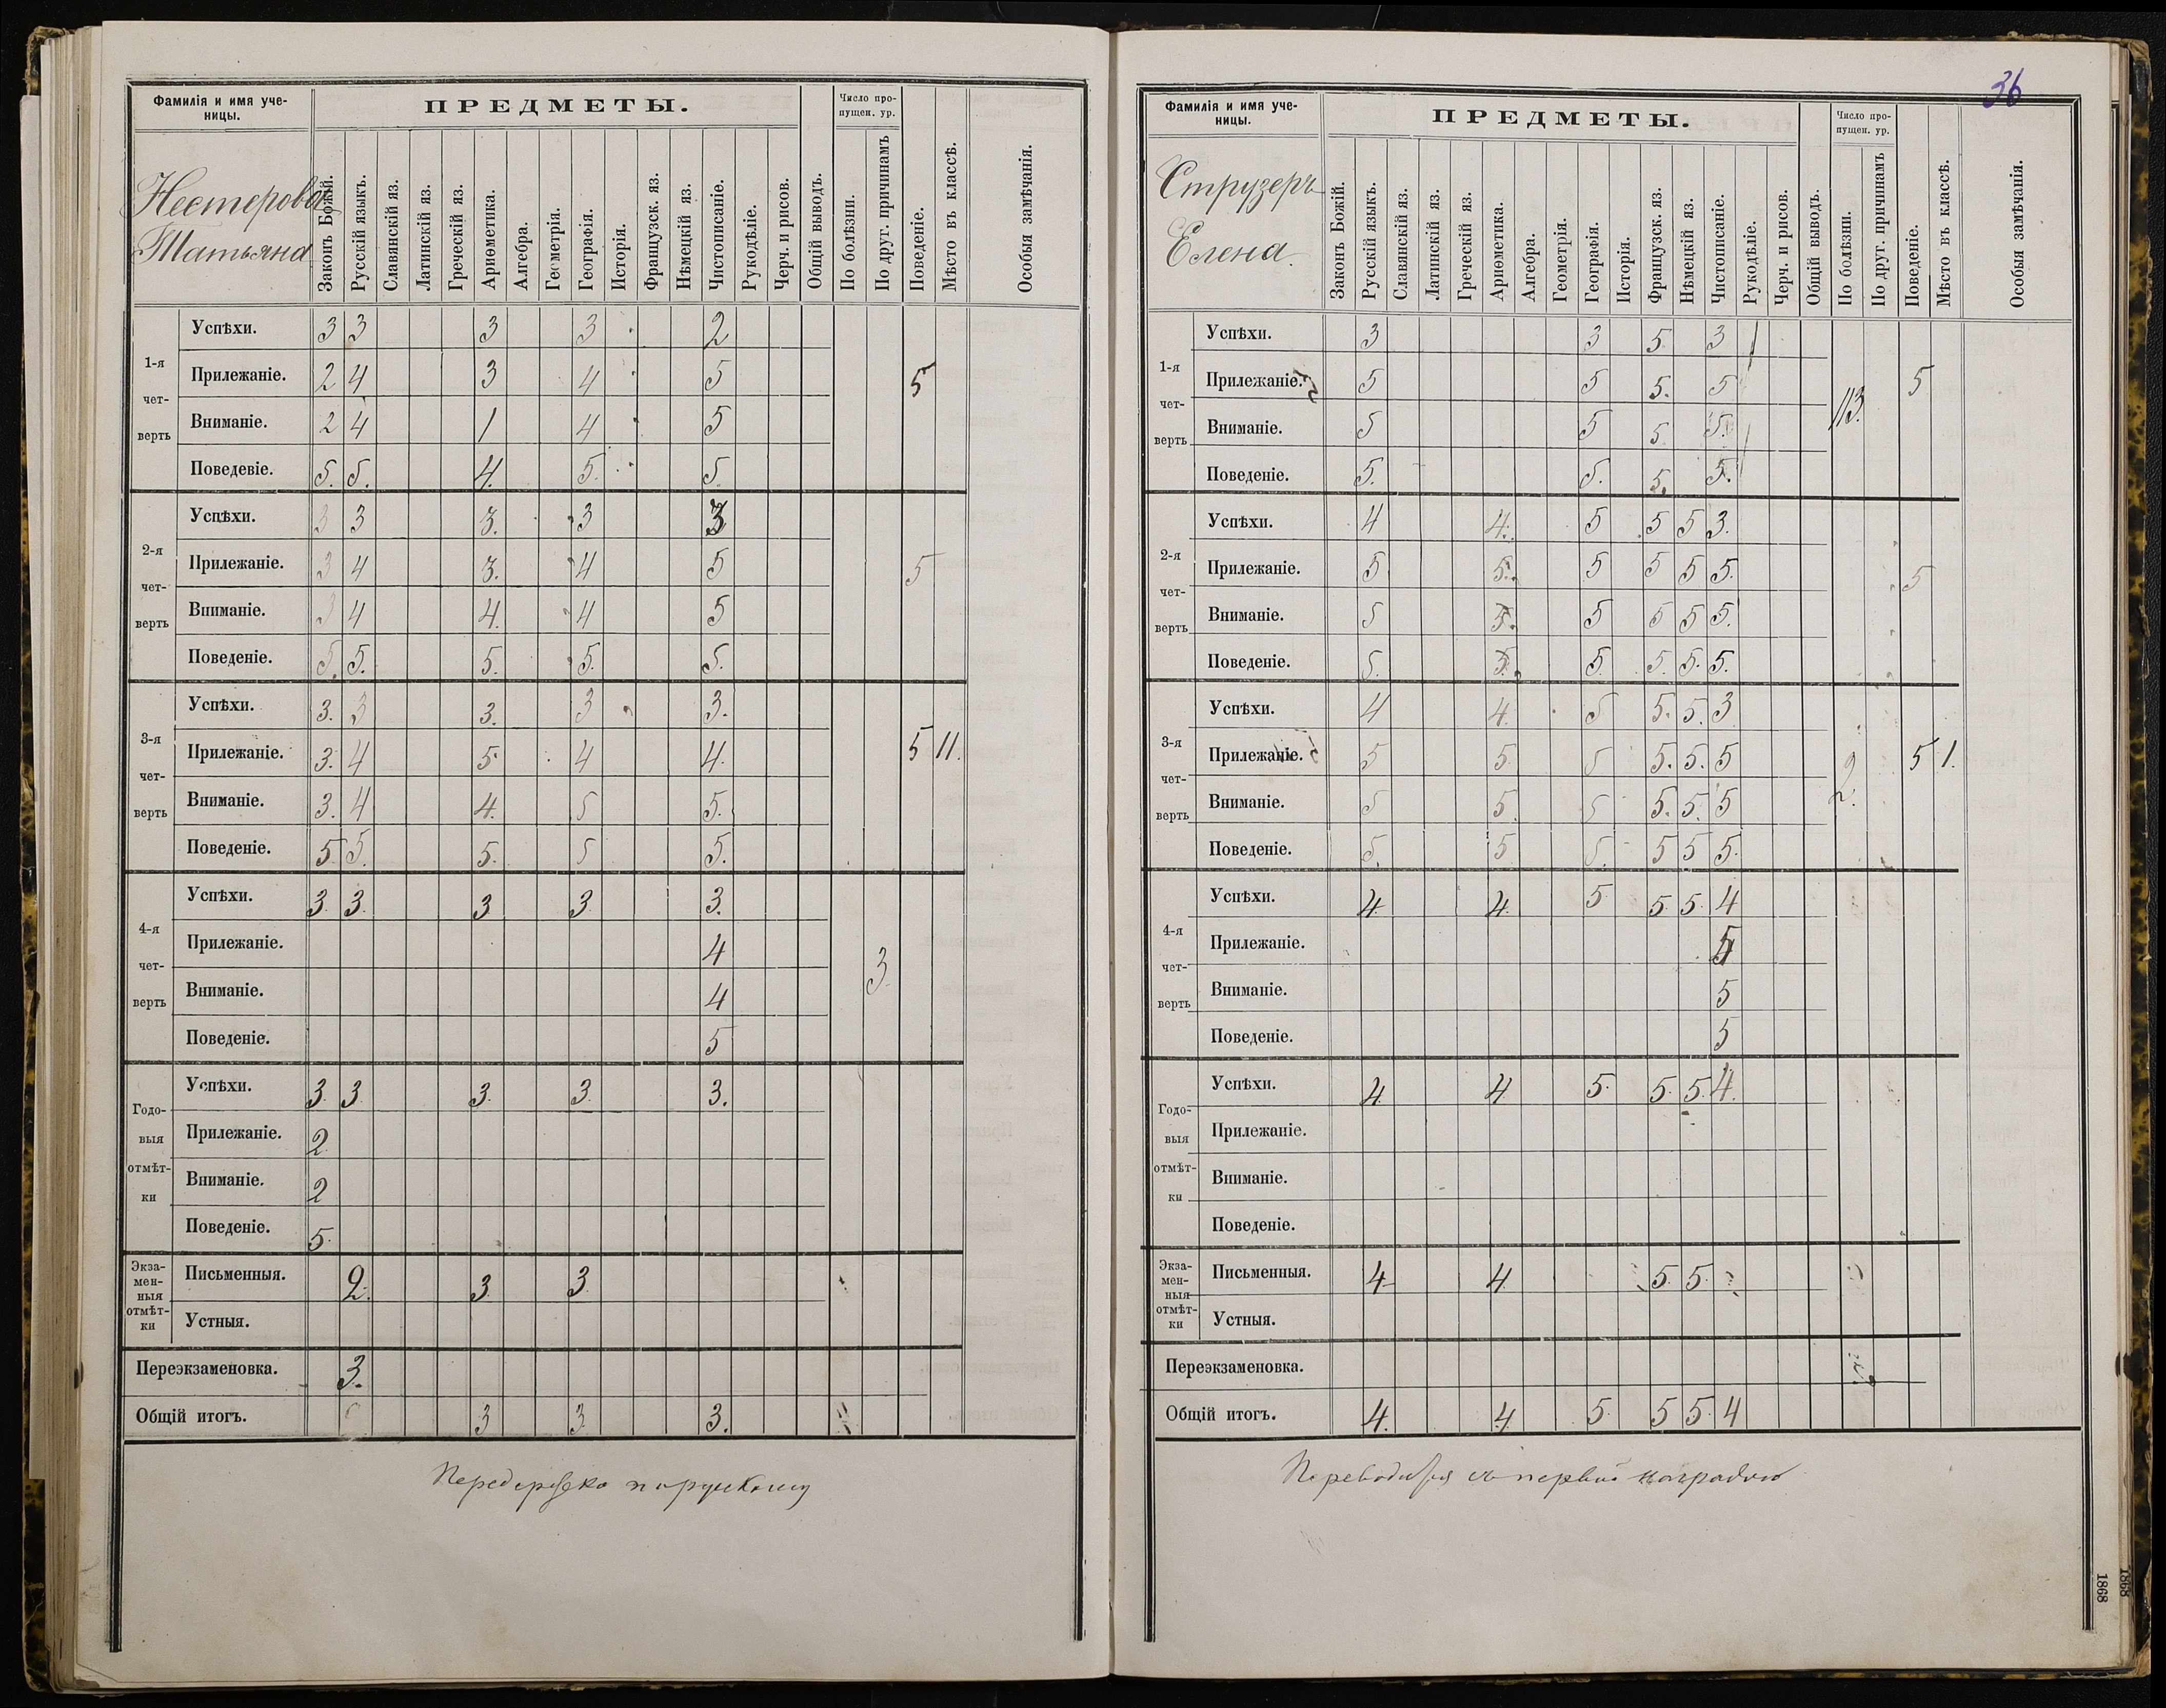 Фамилія и имя уче-
ницы.
ПРЕДМЕТЫ.
Число про-
пущен. ур.
Нестерова
Татьяна
Законъ Божій.
Русскій языкъ.
Славянскій яз.
Латинскій яз.
Греческій яз.
Ариѳметика.
Алгебра.
Геометрія.
Географія.
Исторія.
Французск. яз.
Нѣмецкій яз.
Чистописаніе.
Рукодѣліе.
Черч. и рисов.
Общій выводъ.
По болѣзни.
По друг. причинамъ
Поведеніе.
Мѣсто въ классѣ.
Особыя замѣчанія.
1-я
чет-
верть
Успѣхи. 3 3 3 3 2
Прилежаніе. 2 4 3 4 5 5
Вниманіе. 2 4 1 4 5
Поведевіе. 5. 5. 4. 5. 5.
2-я
чет-
верть
Успѣхи. 3 3 3. 3 3
Прилежаніе. 3 4 3. 4 5 5
Вниманіе. 3 4 4. 4 5
Поведеніе. 5. 5. 5. 5. 5.
3-я
чет-
верть
Успѣхи. 3. 3 3. 3 3.
Прилежаніе. 3. 4 5. 4 4. 5 11.
Вниманіе. 3. 4 4. 5 5.
Поведеніе. 5 5. 5. 5 5.
4-я
чет-
верть
Успѣхи. 3. 3. 3 3. 3.
Прилежаніе. 4
Вниманіе. 4 3.
Поведеніе. 5
Годо-
выя
отмѣт-
ки
Успѣхи. 3. 3. 3. 3. 3.
Прилежаніе. 2
Вниманіе. 2
Поведеніе. 5.
Экза-
мен-
ныя
отмѣт-
ки
Письменныя. 2. 3. 3.
Устныя.
Переэкзаменовка. 3.
Общій итогъ. 3 3 3.
36
Фамилія и имя уче-
ницы.
ПРЕДМЕТЫ.
Число про-
пущен. ур.
Струзеръ
Елена.
Законъ Божій.
Русскій языкъ.
Славянскій яз.
Латинскій яз.
Греческій яз.
Ариѳметика.
Алгебра.
Геометрія.
Географія.
Исторія.
Французск. яз.
Нѣмецкій яз.
Чистописаніе.
Рукодѣліе.
Черч. и рисов.
Общій выводъ.
По болѣзни.
По друг. причинамъ
Поведеніе.
Мѣсто въ классѣ.
Особыя замѣчанія.
1-я
чет-
верть
Успѣхи. 3 3 5. 3
Прилежаніе. 5 5 5. 5 5
Вниманіе. 5 5 5. 5. 113.
Поведеніе. 5. 5. 5. 5.
2-я
чет-
верть
Успѣхи. 4 4. 5 5 5 3.
Прилежаніе. 5 5. 5 5 5 5. 5
Вниманіе. 5 5. 5 5 5 5.
Поведеніе. 5. 5. 5. 5. 5. 5.
3-я
чет-
верть
Успѣхи. 4 4. 5 5. 5. 3
Прилежаніе. 5 5 5 5. 5. 5 5 1.
Вниманіе. 5 5. 5 5. 5. 5
Поведеніе. 5. 5 5. 5 5 5.
4-я
чет-
верть
Успѣхи. 4. 4. 5. 5. 5. 4
Прилежаніе. 5
Вниманіе. 5
Поведеніе. 5
Годо-
выя
отмѣт-
ки
Успѣхи. 4. 4 5. 5. 5. 4.
Прилежаніе.
Вниманіе.
Поведеніе.
Экза-
мен-
ныя
отмѣт-
ки
Письменныя. 4 4. 5. 5.
Устныя.
Переэкзаменовка.
Общій итогъ. 4. 4. 5. 5 5. 4
Переводится съ первой наградою
1868
1868